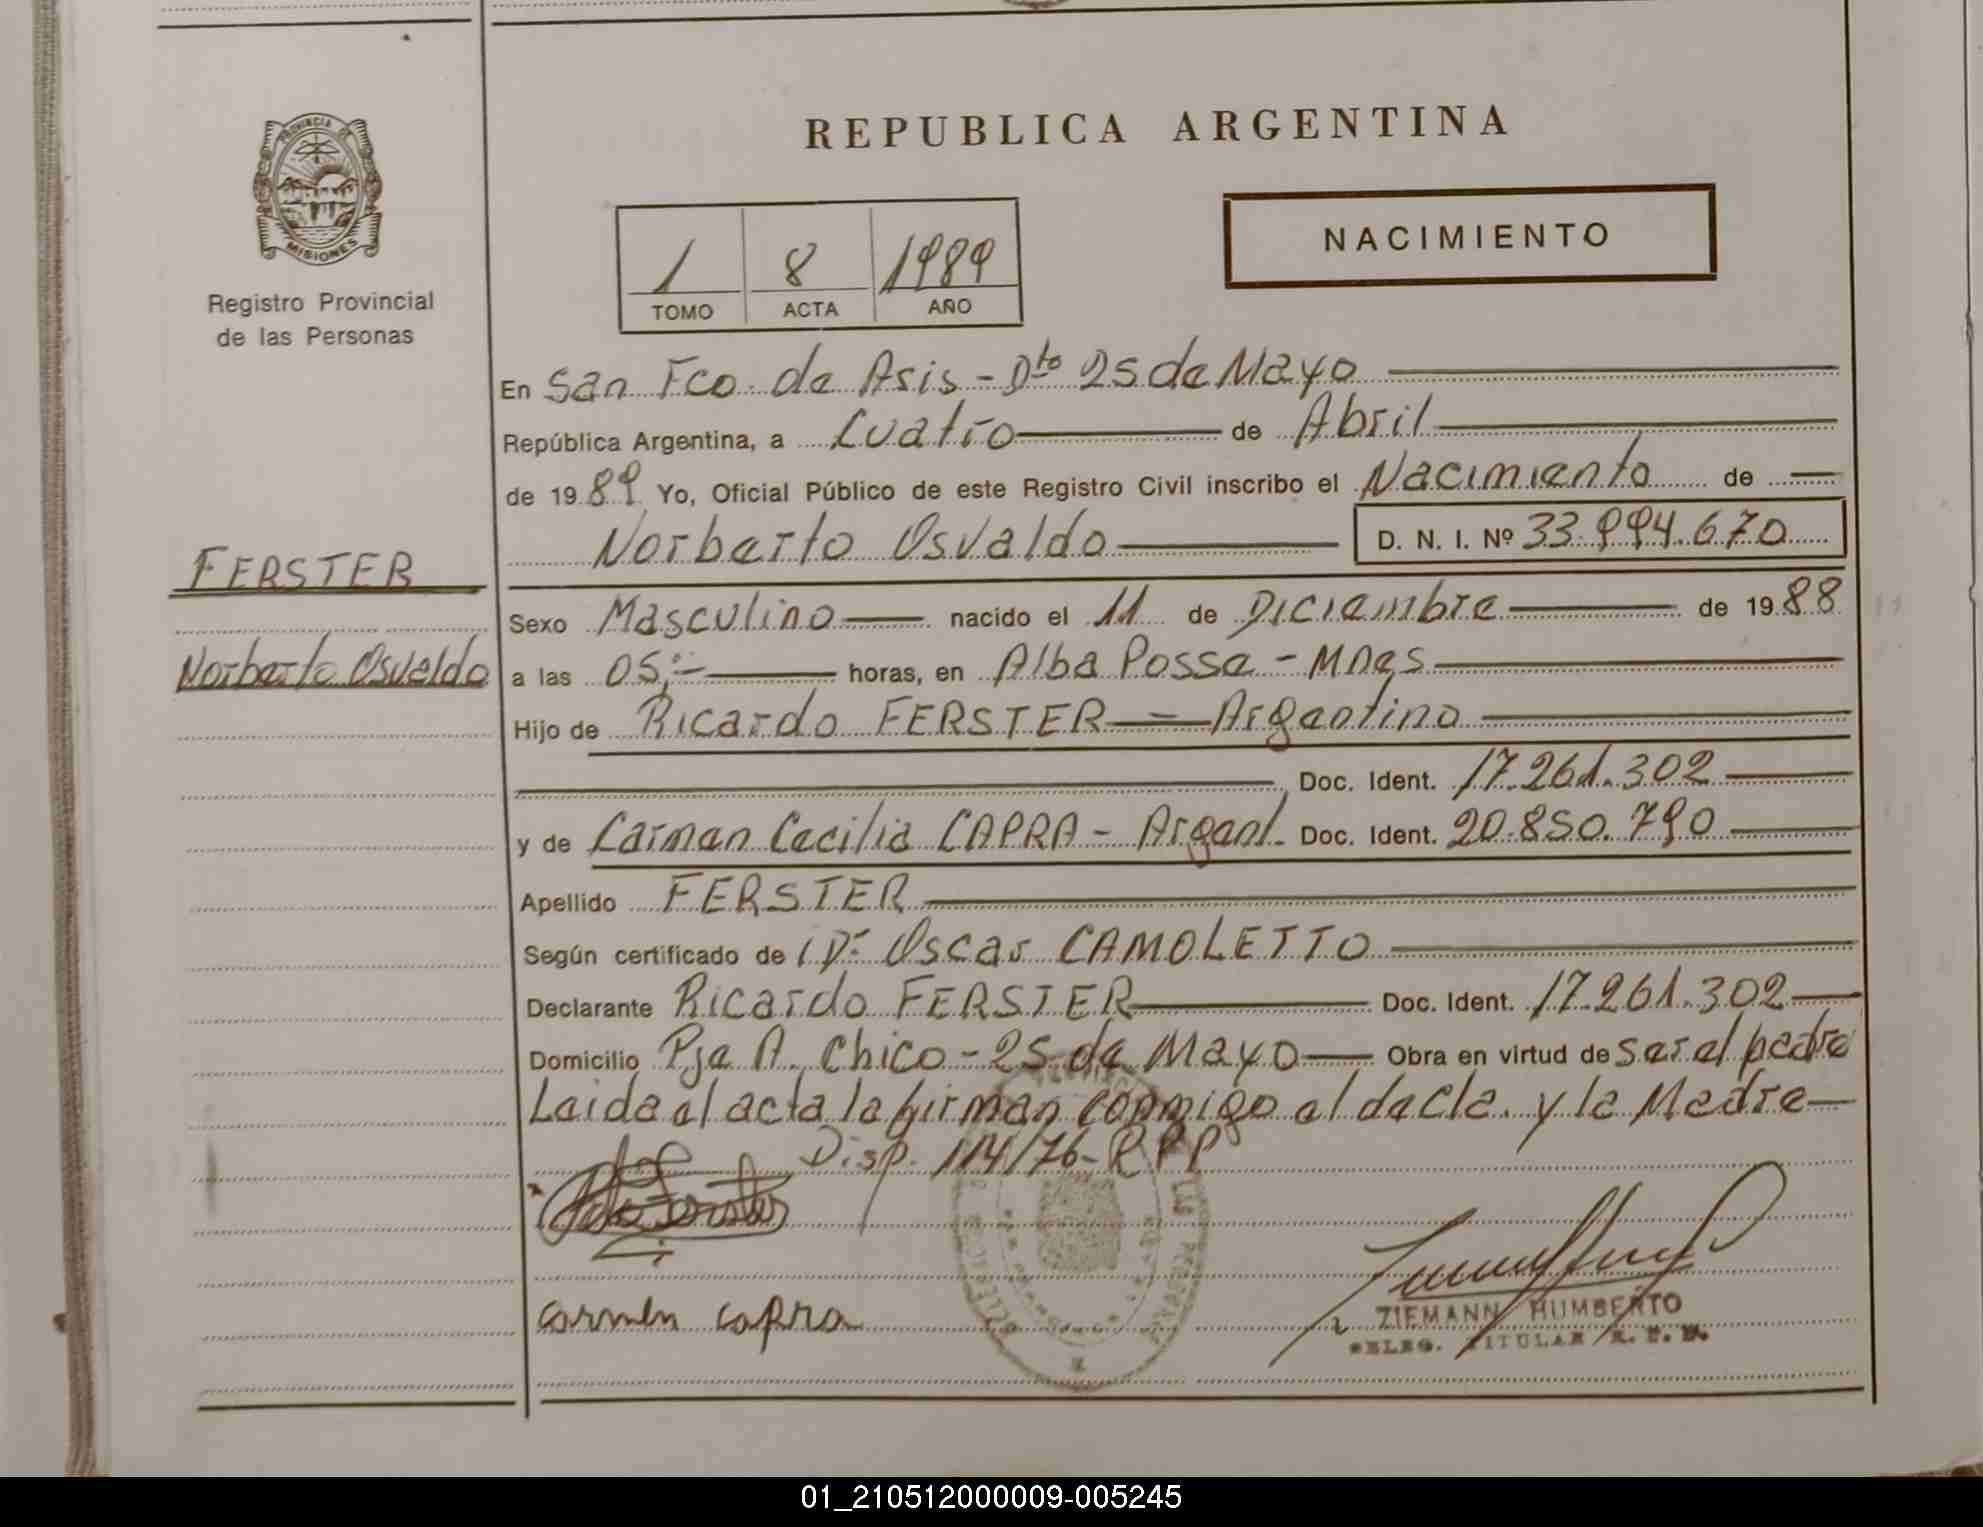 REPUBLICA ARGENTINA
PROVINCIA DE
MISIONES
Registro Provincial
de las Personas
NACIMIENTO
1 8 1989
TOMO ACTA AÑO
En San Fco. de Asis - Dto 25 de Mayo
República Argentina, a Cuatro de Abril
de 1989 Yo, Oficial Público de este Registro Civil inscribo el Nacimiento de
Norberto Osvaldo D. N. I. Nº 33.994.670
FERSTER
Norberto Osvaldo
Sexo Masculino nacido el 11 de Diciembre de 1988
a las 05:- horas, en Alba Posse - Mnes
Hijo de Ricardo FERSTER - Argentino
Doc. Ident. 17.261.302
y de Carmen Cecilia CAPRA - Argent. Doc. Ident. 20.850.790
Apellido FERSTER
Según certificado de Dr Oscar CAMOLETTO
Declarante Ricardo FERSTER Doc. Ident. 17.261.302
Domicilio Pje A. Chico - 25 de Mayo Obra en virtud de ser el padre
Leida el acta la firman conmigo el decla. y la Madre
Disp. 114/76-RPP
Carmen Capra
ZIEMANN HUMBERTO
DELEG. TITULAR R. P. P.
01_210512000009-005245